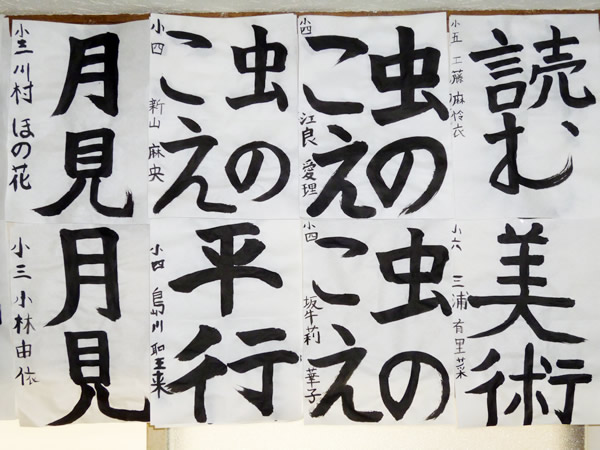 読む
小五 工藤 麻怜衣
虫の
こえ
小四 江良 愛理
虫の
こえ
小四 新山 麻央
月見
小三 川村 ほの花
美術
小六 三浦 有里菜
虫の
こえ
小四 坂牛 莉華子
平行
小四
月見
小三 小林 由依